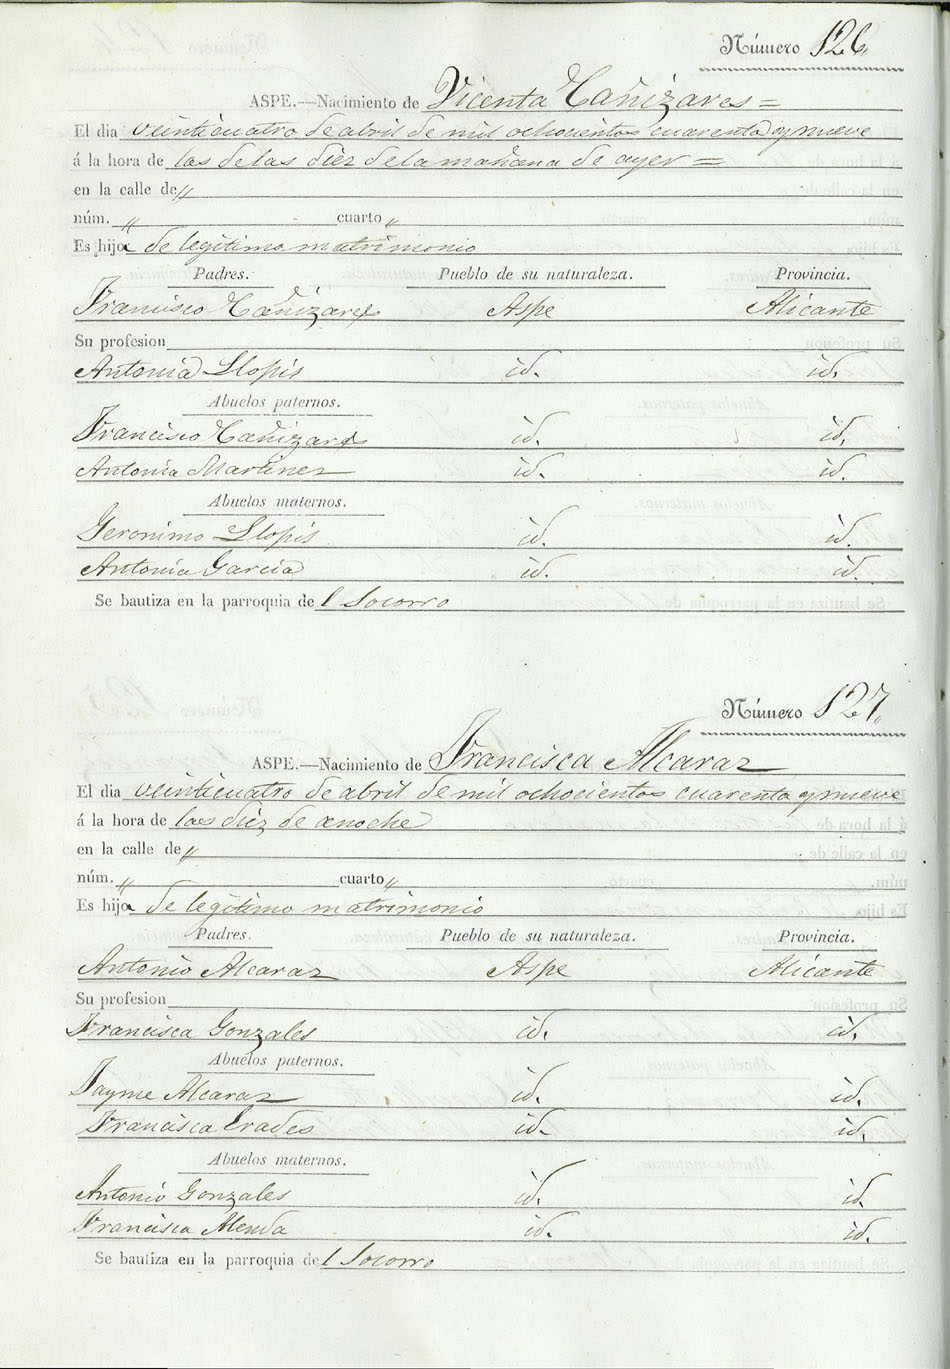 Número 126.
ASPE.—Nacimiento de Vicenta Cañizares =
El dia veinticuatro de abril de mil ochocientos cuarenta y nueve
á la hora de las de las diez de la mañana de ayer =
en la calle de "
núm. " cuarto "
Es hija de legitimo matrimonio
Padres. Pueblo de su naturaleza. Provincia.
Francisco Cañizares Aspe Alicante
Su profesion
Antonia Llopis id. id.
Abuelos paternos.
Francisco Cañizares id. id.
Antonia Martinez id. id.
Abuelos maternos.
Geronimo Llopis id. id.
Antonia Garcia id. id.
Se bautiza en la parroquia del Socorro
Número 127.
ASPE.—Nacimiento de Francisca Alcaraz
El dia veinticuatro de abril de mil ochocientos cuarenta y nueve
á la hora de las diez de anoche
en la calle de "
núm. " cuarto "
Es hija de legitimo matrimonio
Padres. Pueblo de su naturaleza. Provincia.
Antonio Alcaraz Aspe Alicante
Su profesion
Francisca Gonzales id. id.
Abuelos paternos.
Jayme Alcaraz id. id.
Francisca Erades id. id.
Abuelos maternos.
Antonio Gonzales id. id.
Francisca Alenda id. id.
Se bautiza en la parroquia del Socorro